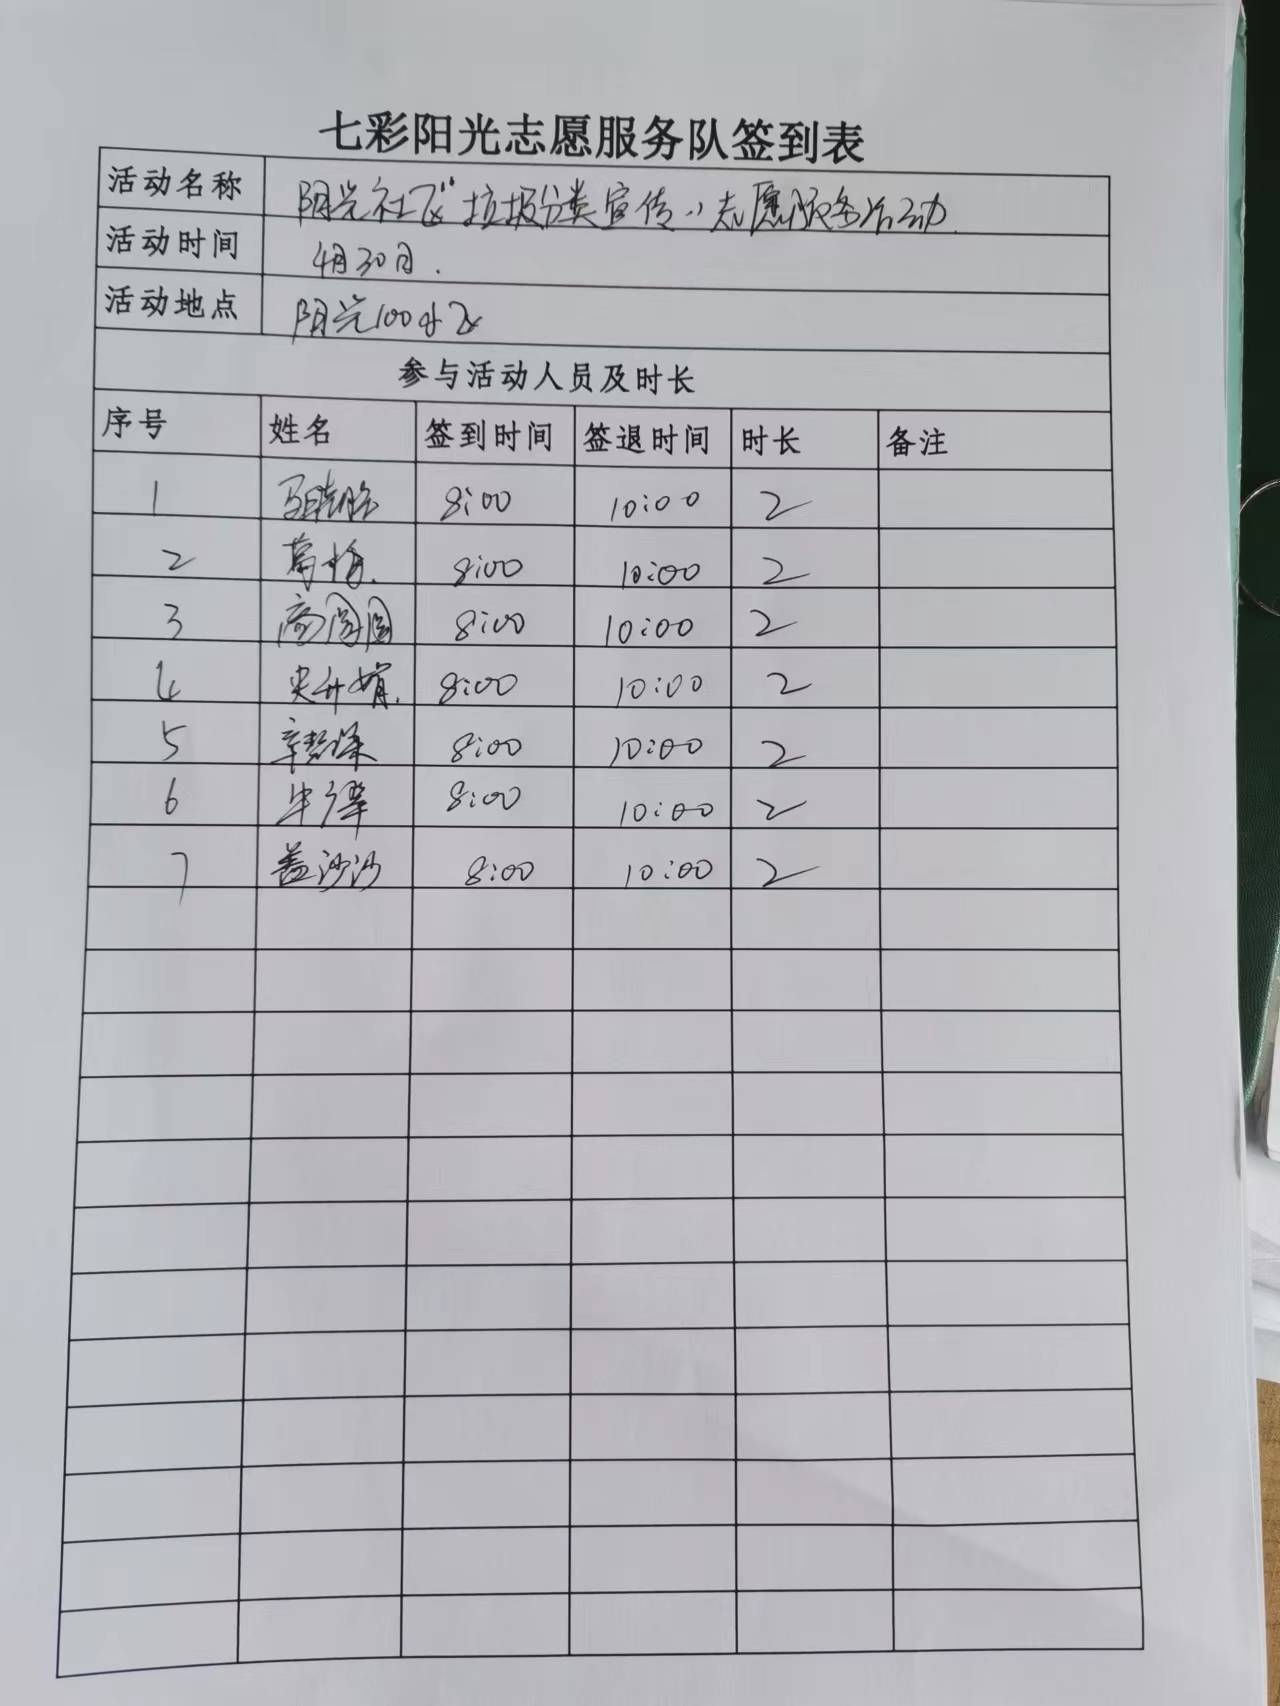 七彩阳光志愿服务队签到表
活动名称 阳光社区“垃圾分类宣传”志愿服务活动.
活动时间 4月30日.
活动地点 阳光100小区
参与活动人员及时长
序号 姓名 签到时间 签退时间 时长 备注
1 8:00 10:00 2
2 葛梅. 8:00 10:00 2
3 高圆圆 8:00 10:00 2
4 8:00 10:00 2
5 8:00 10:00 2
6 8:00 10:00 2
7 盖沙沙 8:00 10:00 2